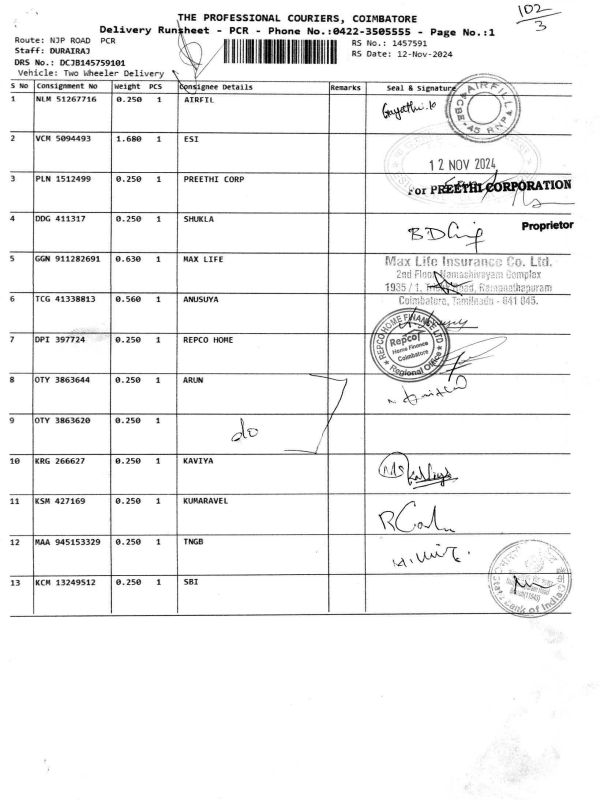 102/3
THE PROFESSIONAL COURIERS, COIMBATORE
Delivery Runsheet - PCR - Phone No.:0422-3505555 - Page No.:1
Route: NJP ROAD PCR
RS No.: 1457591
Staff: DURAIRAJ
RS Date: 12-Nov-2024
DRS No.: DCJB145759101
Vehicle: Two Wheeler Delivery
S No Consignment No Weight PCS Consignee Details Remarks Seal & Signature
1 NLM 51267716 0.250 1 AIRFIL
Gayathi.k
AIRFILL CBE-45 RNP
2 VCM 5094493 1.680 1 ESI
12 NOV 2024
3 PLN 1512499 0.250 1 PREETHI CORP
For PREETHI CORPORATION
Proprietor
4 DDG 411317 0.250 1 SHUKLA
5 GGN 911282691 0.630 1 MAX LIFE
Max Life Insurance Co. Ltd.
2nd Floor Namashivayam Complex
1935 / 1, Road, Ramanathapuram
Coimbatore, Tamilnadu - 641 045.
6 TCG 41338813 0.560 1 ANUSUYA
7 DPI 397724 0.250 1 REPCO HOME
REPCO HOME FINANCE LTD
Repco
Home Finance
Coimbatore
Regional Office
8 OTY 3863644 0.250 1 ARUN
9 OTY 3863620 0.250 1 do
10 KRG 266627 0.250 1 KAVIYA
11 KSM 427169 0.250 1 KUMARAVEL
12 MAA 945153329 0.250 1 TNGB
13 KCM 13249512 0.250 1 SBI
State Bank of India